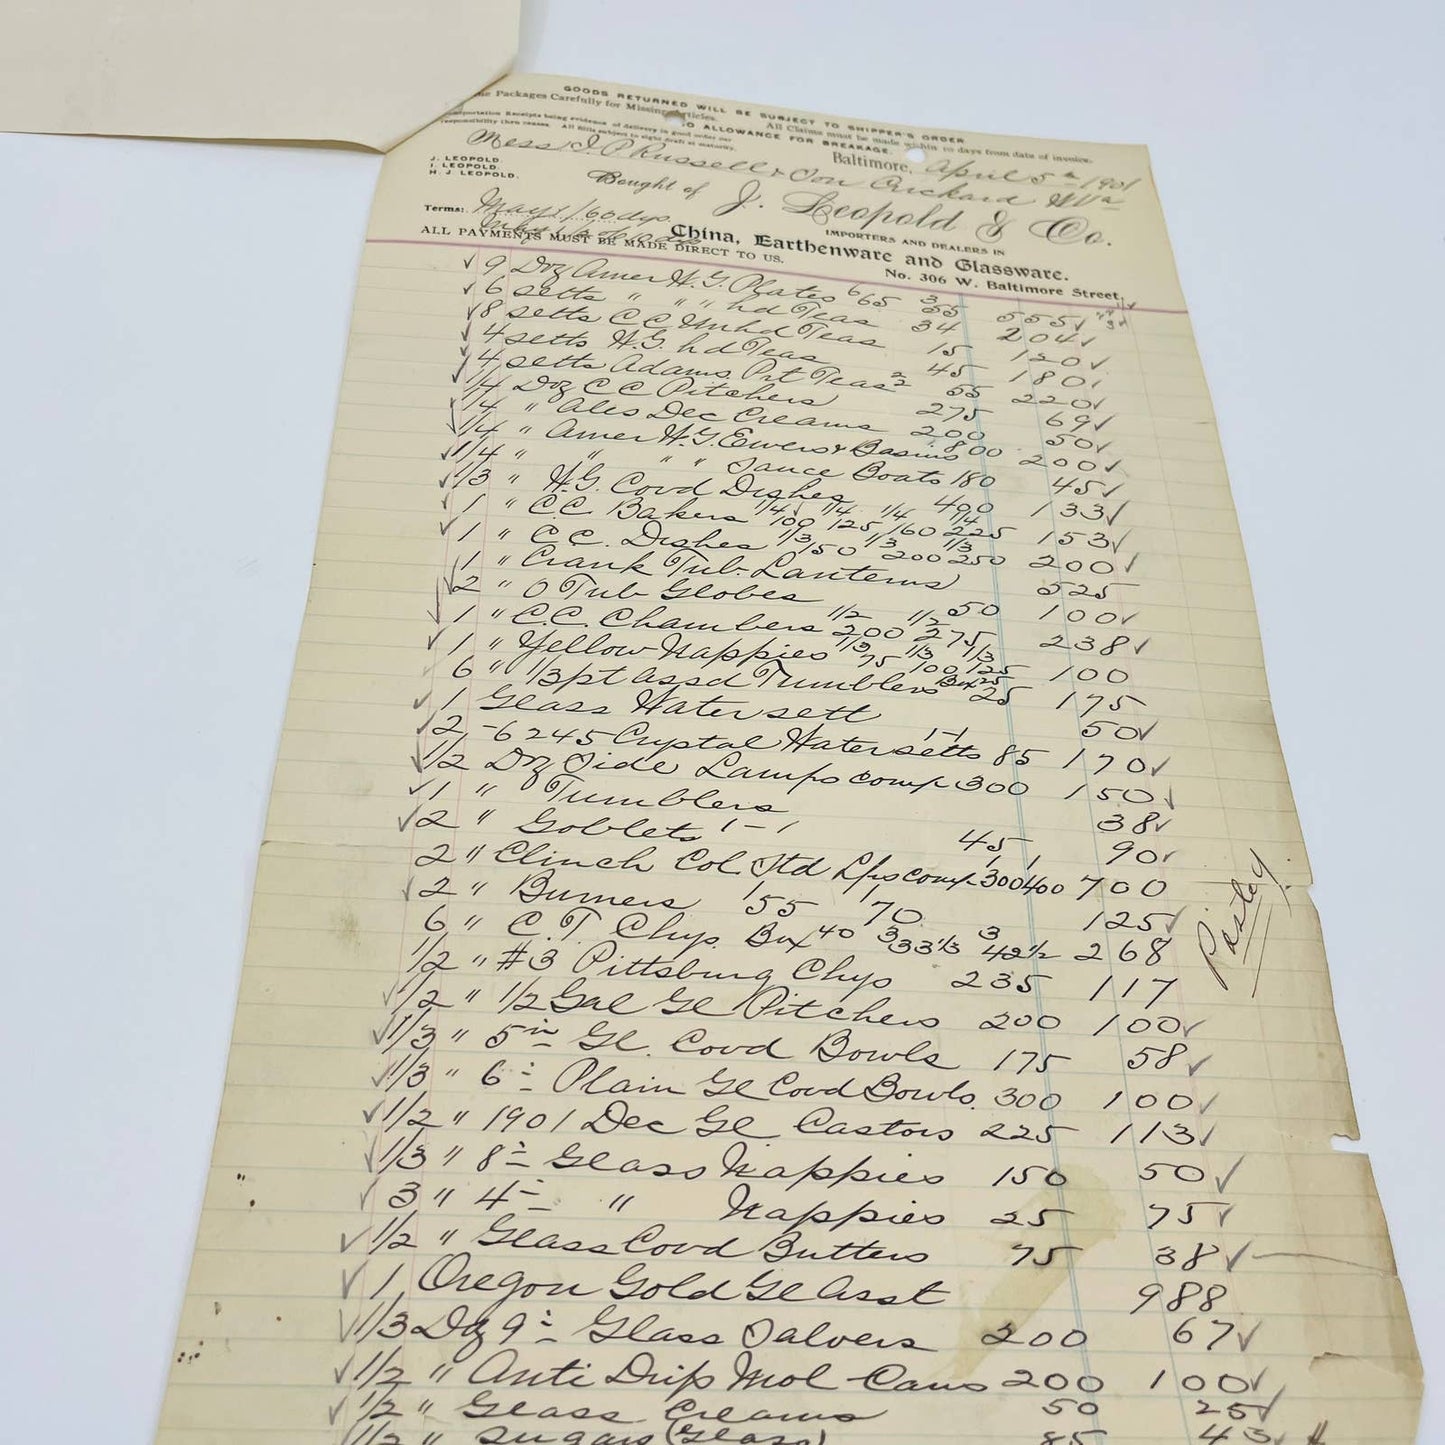 GOODS RETURNED WILL BE SUBJECT TO SHIPPER'S ORDER
Packages Carefully for Missing Articles. All Claims must be made within 10 days from date of invoice.
Transportation Receipts being evidence of delivery in good order our NO ALLOWANCE FOR BREAKAGE.
responsibility then ceases. All Bills subject to sight draft at maturity.
Baltimore, April 5th 1901
Mess J. P. Russell & Son Orchard W Va
J. LEOPOLD.
I. LEOPOLD.
H. J. LEOPOLD.
Bought of J. Leopold & Co.
IMPORTERS AND DEALERS IN
Terms: May 1/60 dys
China, Earthenware and Glassware.
ALL PAYMENTS MUST BE MADE DIRECT TO US. No. 306 W. Baltimore Street,
9 Doz Amer H.G. Plates 6 65 3 55 555
6 setts " " " hd Teas 34 204
8 setts C C Unhd Teas 15 120
4 setts H.G. hd Teas 45 180
4 setts Adams Prt Teas 55 220
1/4 Doz C C Pitchers 275 69
1/4 " Ales Dec Creams 200 50
1/4 " Amer H.G. Ewers & Basins 800 200
1/4 " " " " Sauce Boats 180 45
1/3 " H.G. Covd Dishes 400 133
1 " C.C. Bakers 1/4 100 1/4 125 1/4 160 1/4 225 153
1 " C.C. Dishes 1/3 150 1/3 200 1/3 250 200
1 " Crank Tub. Lanterns 525
2 " O Tub Globes 50 100
1 " C.C. Chambers 1/2 200 1/2 275 238
1 " Yellow Nappies 1/3 75 1/3 100 1/3 125 100
6 " 1/3 pt assd Tumblers Box 25 25 175
1 Glass Water sett 50
2 - 6245 Crystal Water setts 1-1 85 170
1/2 Doz Side Lamps comp 300 150
1 " Tumblers 38
2 " Goblets 1-1 45 90
2 " Clinch Col. Std Lps comp 1 300 1 400 700
2 " Burners 1 55 1 70 125
6 " C.T. Chys. Box 40 3 33 1/3 3 42 1/2 268
1/2 " #3 Pittsburg Chys 235 117
1/2 " 1/2 Gal Gl Pitchers 200 100
1/3 " 5 in Gl. Covd Bowls 175 58
1/3 " 6 " Plain Gl Covd Bowls. 300 100
1/2 " 1901 Dec Gl Castors 225 113
1/3 " 8 " Glass Nappies 150 50
3 " 4 " " Nappies 25 75
1/2 " Glass Covd Butters 75 38
1 Oregon Gold Gl Asst 988
1/3 Doz 9 " Glass Salvers 200 67
1/2 " Anti Drip Mol Cans 200 100
1/2 " Glass Creams 50 25
1/2 " Sugars (Glass) 85 43